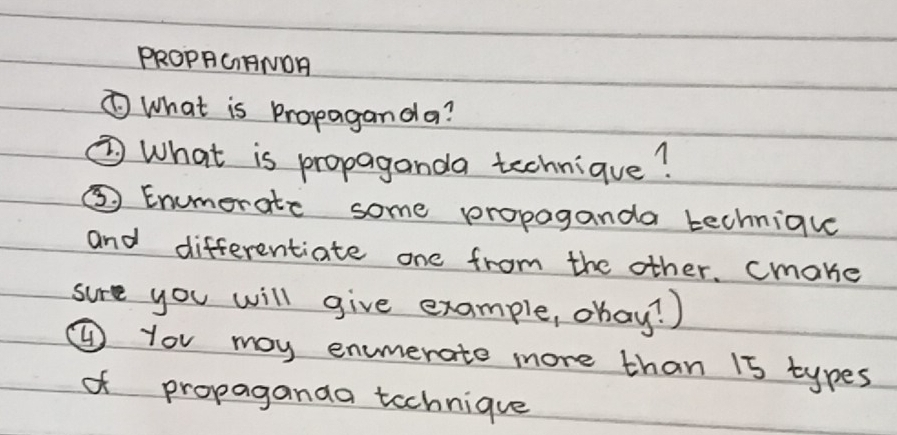 PROPAGANDA
1. What is Propaganda?
2. What is propaganda technique?
3. Enumerate some propaganda technique
and differentiate one from the other. (make
sure you will give example, okay?)
4 You may enumerate more than 15 types
of propaganda technique